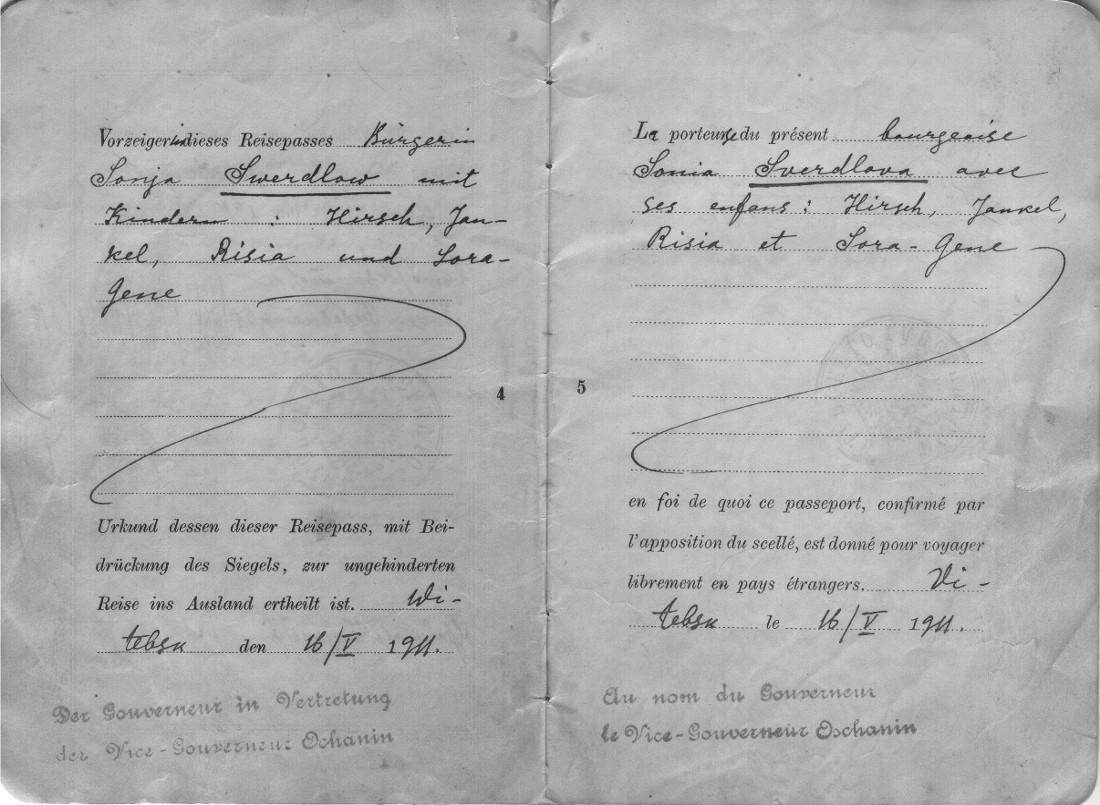 Vorzeigerin dieses Reisepasses Bürgerin
Sonja Swerdlow mit
Kindern : Hirsch, Jan-
kel, Risia und Sora-
Gene
Urkund dessen dieser Reisepass, mit Bei-
drückung des Siegels, zur ungehinderten
Reise ins Ausland ertheilt ist. Wi-
tebsk den 16/V 1911.
Der Gouverneur in Vertretung
der Vice-Gouverneur Ochanin
4
5
La porteuse du présent bourgeoise
Sonia Sverdlova avec
ses enfans : Hirsch, Jankel,
Risia et Sora-Gene
en foi de quoi ce passeport, confirmé par
l'apposition du scellé, est donné pour voyager
librement en pays étrangers. Vi-
tebsk le 16/V 1911.
Au nom du Gouverneur
le Vice-Gouverneur Oschanin